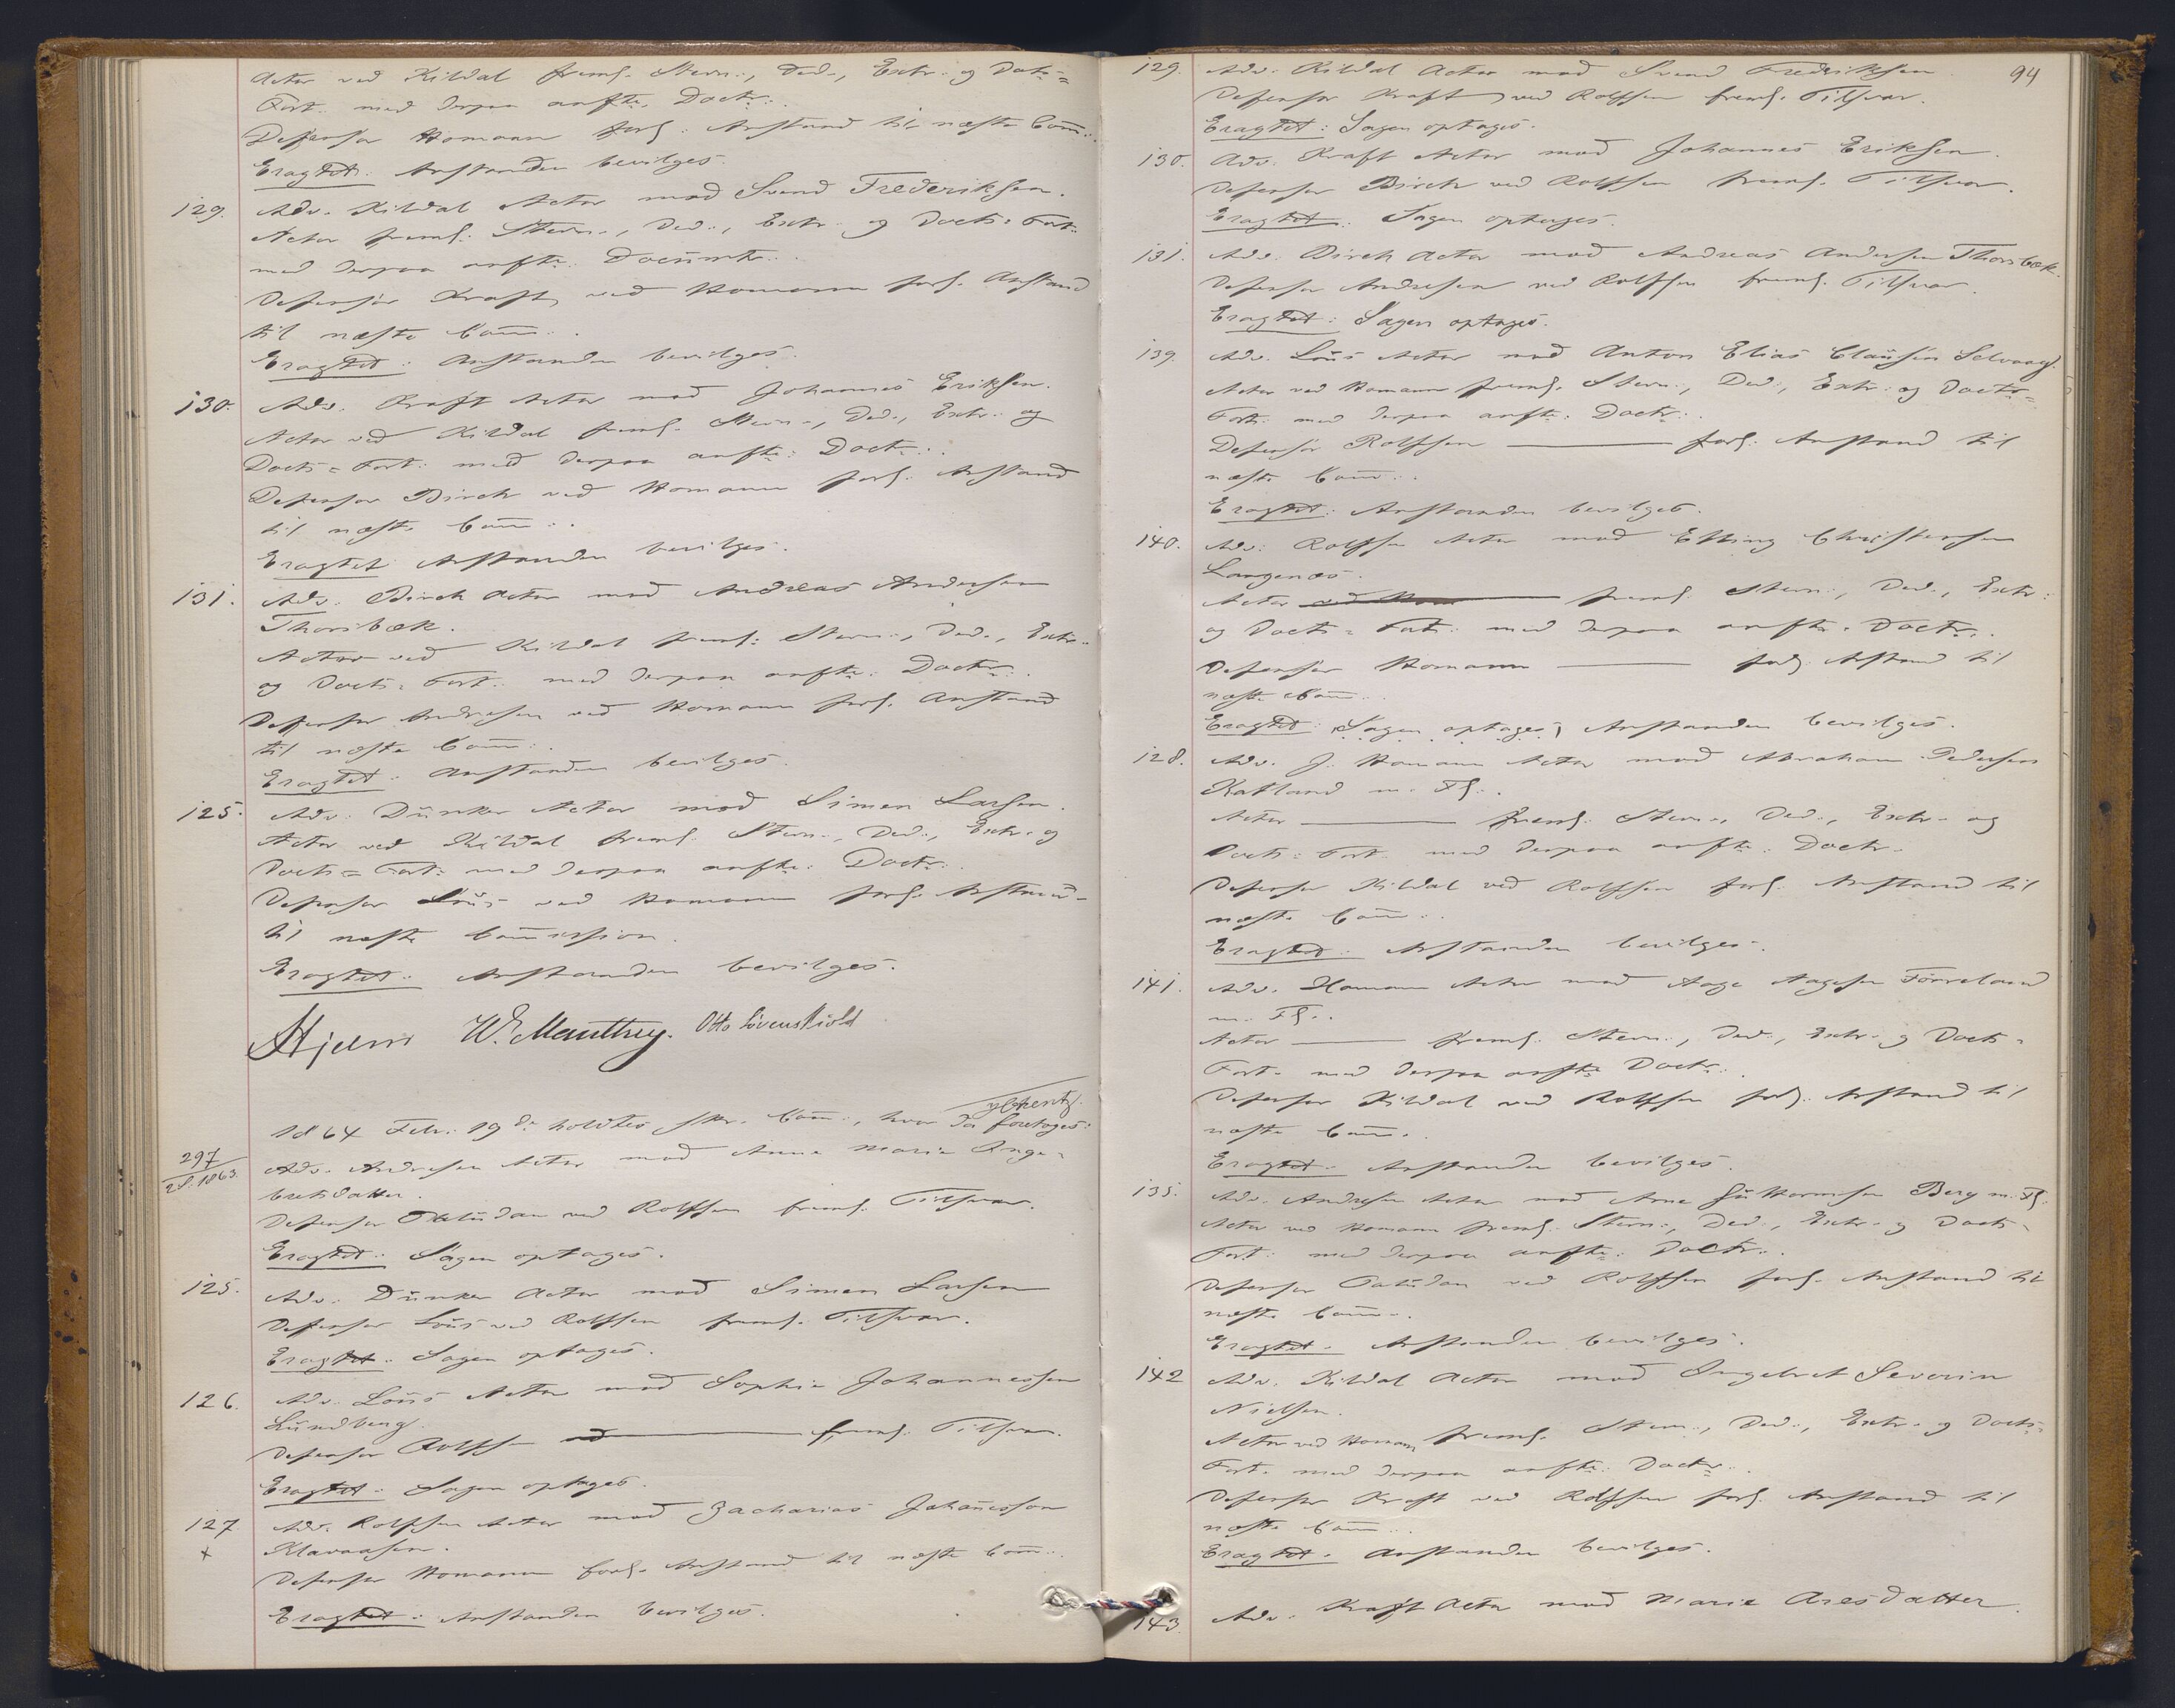 Actor ved Kildal freml. Stevn., Ded., Extr. og Docts=
Fort. med derpaa anfte. Doctr..
Defensor Homann forl. Anstand til næste Comm..
Eragtet: Anstanden bevilges.
129. Adv. Kildal Actor mod Svend Frederiksen.
Actor freml. Stevn., Ded., Extr. og Docts= Fort.
med derpaa anfte. Documtr..
Defensor Kraft ved Homann forl. Anstand
til næste Comm..
Eragtet: Anstanden bevilges.
130. Adv. Kraft Actor mod Johannes Eriksen.
Actor ved Kildal freml. Stevn., Ded., Extr. og
Docts= Fort. med derpaa anfte. Doctr..
Defensor Birch ved Homann forl. Anstand
til næste Comm..
Eragtet Anstanden bevilges.
131. Adv. Birch Actor mod Andreas Andersen
Thorsbæk.
Actor ved Kildal freml. Stevn., Ded., Extr.
og Docts= Fort. med derpaa anfte. Doctr..
Defensor Andresen ved Homann forl. Anstand
til næste Comm..
Eragtet: Anstanden bevilges.
125. Adv. Dunker Actor mod Simen Larsen.
Actor ved Kildal freml. Stevn., Ded., Extr. og
Docts= Fort. med derpaa anfte. Doctr..
Defensor Lous ved Homann forl. Anstand
til næste Commission.
Eragtet: Anstanden bevilges.
Hjelm W. Manthey. Otto Løvenskiold
1864 Febr. 19de holdtes Comm., hvor da foretoges:
297
28. 1863. Adv. Andresen Actor mod Anne Marie Inge=
bretsdatter.
Defensor Paludan ved Rolfsen freml. Tilsvar.
Eragtet: Sagen optages.
125. Adv. Dunker Actor mod Simen Larsen
Defensor Lous ved Rolfsen freml. Tilsvar.
Eragtet: Sagen optages.
126. Adv. Lous Actor mod Sophie Johannessen
Lundberg.
Defensor Rolfsen ved freml. Tilsvar.
Eragtet: Sagen optages.
127 Adv. Rolfsen Actor mod Zacharias Johannesson
x Klavaasen.
Defensor Homann forl. Anstand til næste Comm..
Eragtet: Anstanden bevilges.
94
129. Adv. Kildal Actor mod Svend Frederiksen
Defensor Kraft ved Rolfsen freml. Tilsvar.
Eragtet: Sagen optages.
130. Adv. Kraft Actor mod Johannes Eriksen.
Defensor Birch ved Rolfsen freml. Tilsvar.
Eragtet: Sagen optages.
131. Adv. Birch Actor mod Andreas Andersen Thorsbæk.
Defensor Andresen ved Rolfsen freml. Tilsvar.
Eragtet: Sagen optages.
139. Adv. Lous Actor mod Anton Elias Clausen Selvaag.
Actor ved Homann freml. Stevn., Ded., Extr. og Docts=
Fort. med derpaa anfte. Doctr..
Defensor Rolfsen forl. Anstand til
næste Comm..
Eragtet: Anstanden bevilges.
140. Adv. Rolfsen Actor mod Elling Christensen
Langenæs.
Actor ved Hom freml. Stevn., Ded., Extr.
og Docts= Fort. med derpaa anfte. Doctr.
Defensor Homann forl. Anstand til
næste Comm..
Eragtet: Sagen optages, Anstanden bevilges.
128. Adv. J. Homann Actor mod Abraham Pedersen
Katland m. Fl..
Actor freml. Stevn., Ded., Extr. og
Docts= Fort. med derpaa anfte. Doctr.
Defensor Kildal ved Rolfsen forl. Anstand til
næste Comm..
Eragtet: Anstanden bevilges.
141. Adv. Homann Actor mod Aage Aagesen Förreland
m. Fl..
Actor freml. Stevn., Ded., Extr. og Docts=
Fort. med derpaa anfte. Doctr..
Defensor Kildal ved Rolfsen forl. Anstand til
næste Comm.
Eragtet: Anstanden bevilges.
135. Adv. Andresen Actor mod Arne Guttormsen Berg m. Fl.
Actor ved Homann freml. Stevn., Ded., Extr. og Docts=
Fort. med derpaa anfte. Doctr..
Defensor Paludan ved Rolfsen forl. Anstand til
næste Comm..
Eragtet: Anstanden bevilges.
142 Adv. Kildal Actor mod Ingebret Severin
Nielsen.
Actor ved Homann freml. Stevn., Ded., Extr. og Docts=
Fort. med derpaa anfte. Doctr..
Defensor Kraft ved Rolfsen forl. Anstand til
næste Comm..
Eragtet: Anstanden bevilges.
143. Adv. Kraft Actor mod Marie Aresdatter.